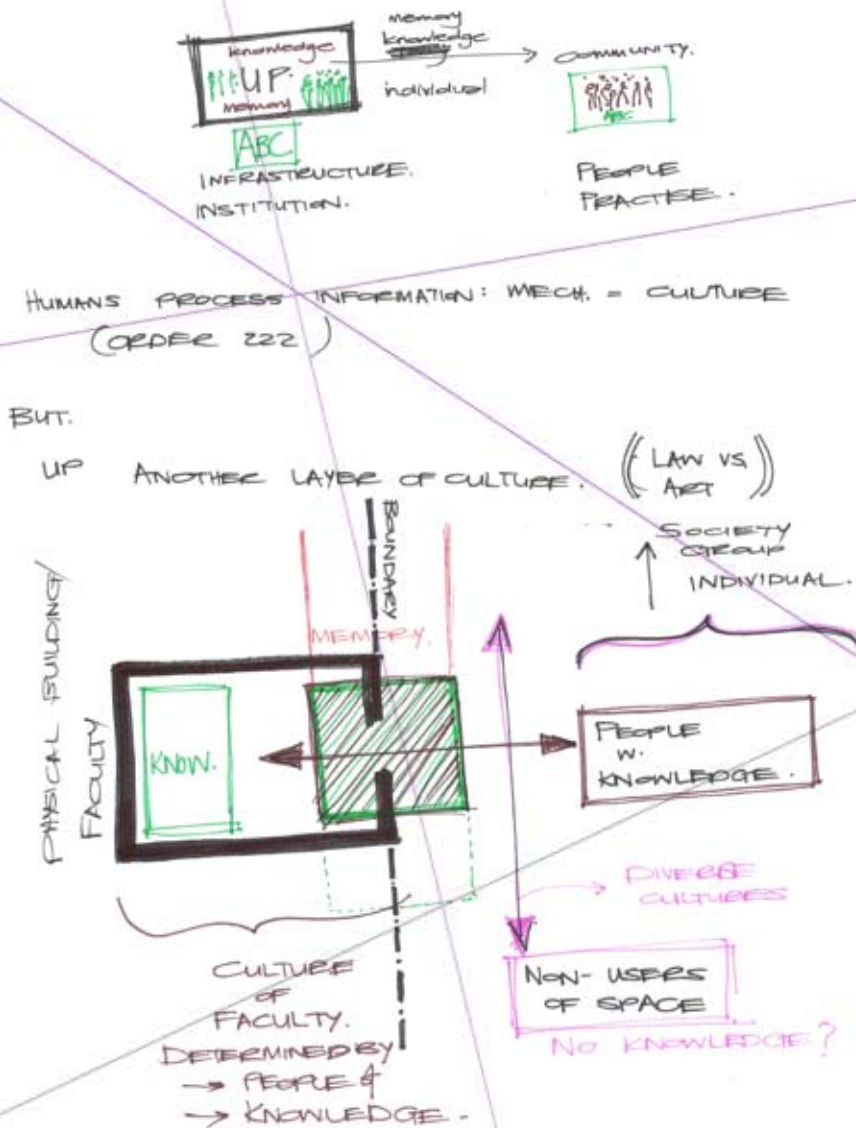 knowledge
UP.
memory
ABC
INFRASTRUCTURE.
INSTITUTION.
memory
knowledge
individual
COMMUNITY.
ABC
PEOPLE
PRACTISE.
HUMANS PROCESS INFORMATION: MECH. = CULTURE
(ORDER 222)
BUT.
UP ANOTHER LAYER OF CULTURE. ((LAW VS
ART))
SOCIETY
GROUP
INDIVIDUAL.
BOUNDARY
MEMORY.
PHYSICAL BUILDING/
FACULTY
KNOW.
PEOPLE
W.
KNOWLEDGE.
DIVERSE
CULTURES
NON-USERS
OF SPACE
NO KNOWLEDGE?
CULTURE
OF
FACULTY.
DETERMINED BY
→ PEOPLE &
→ KNOWLEDGE.